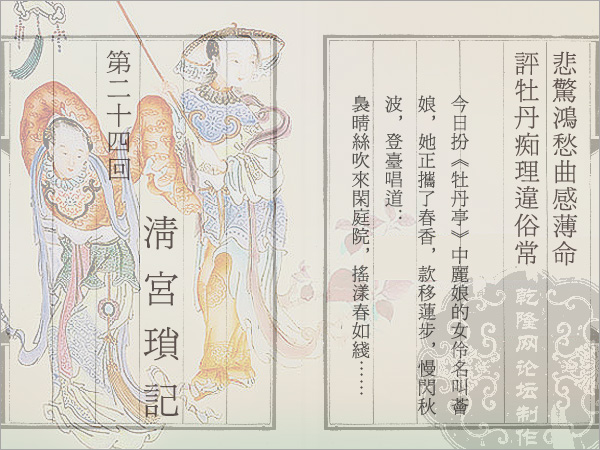 悲驚鴻愁曲感薄命
評牡丹痴理違俗常
今日扮《牡丹亭》中麗娘的女伶名叫薔
娘，她正攜了春香，款移蓮步，慢閃秋
波，登臺唱道…
裊晴絲吹來閑庭院，搖漾春如綫……
第二十四回
清宮瑣記
乾隆网论坛制作